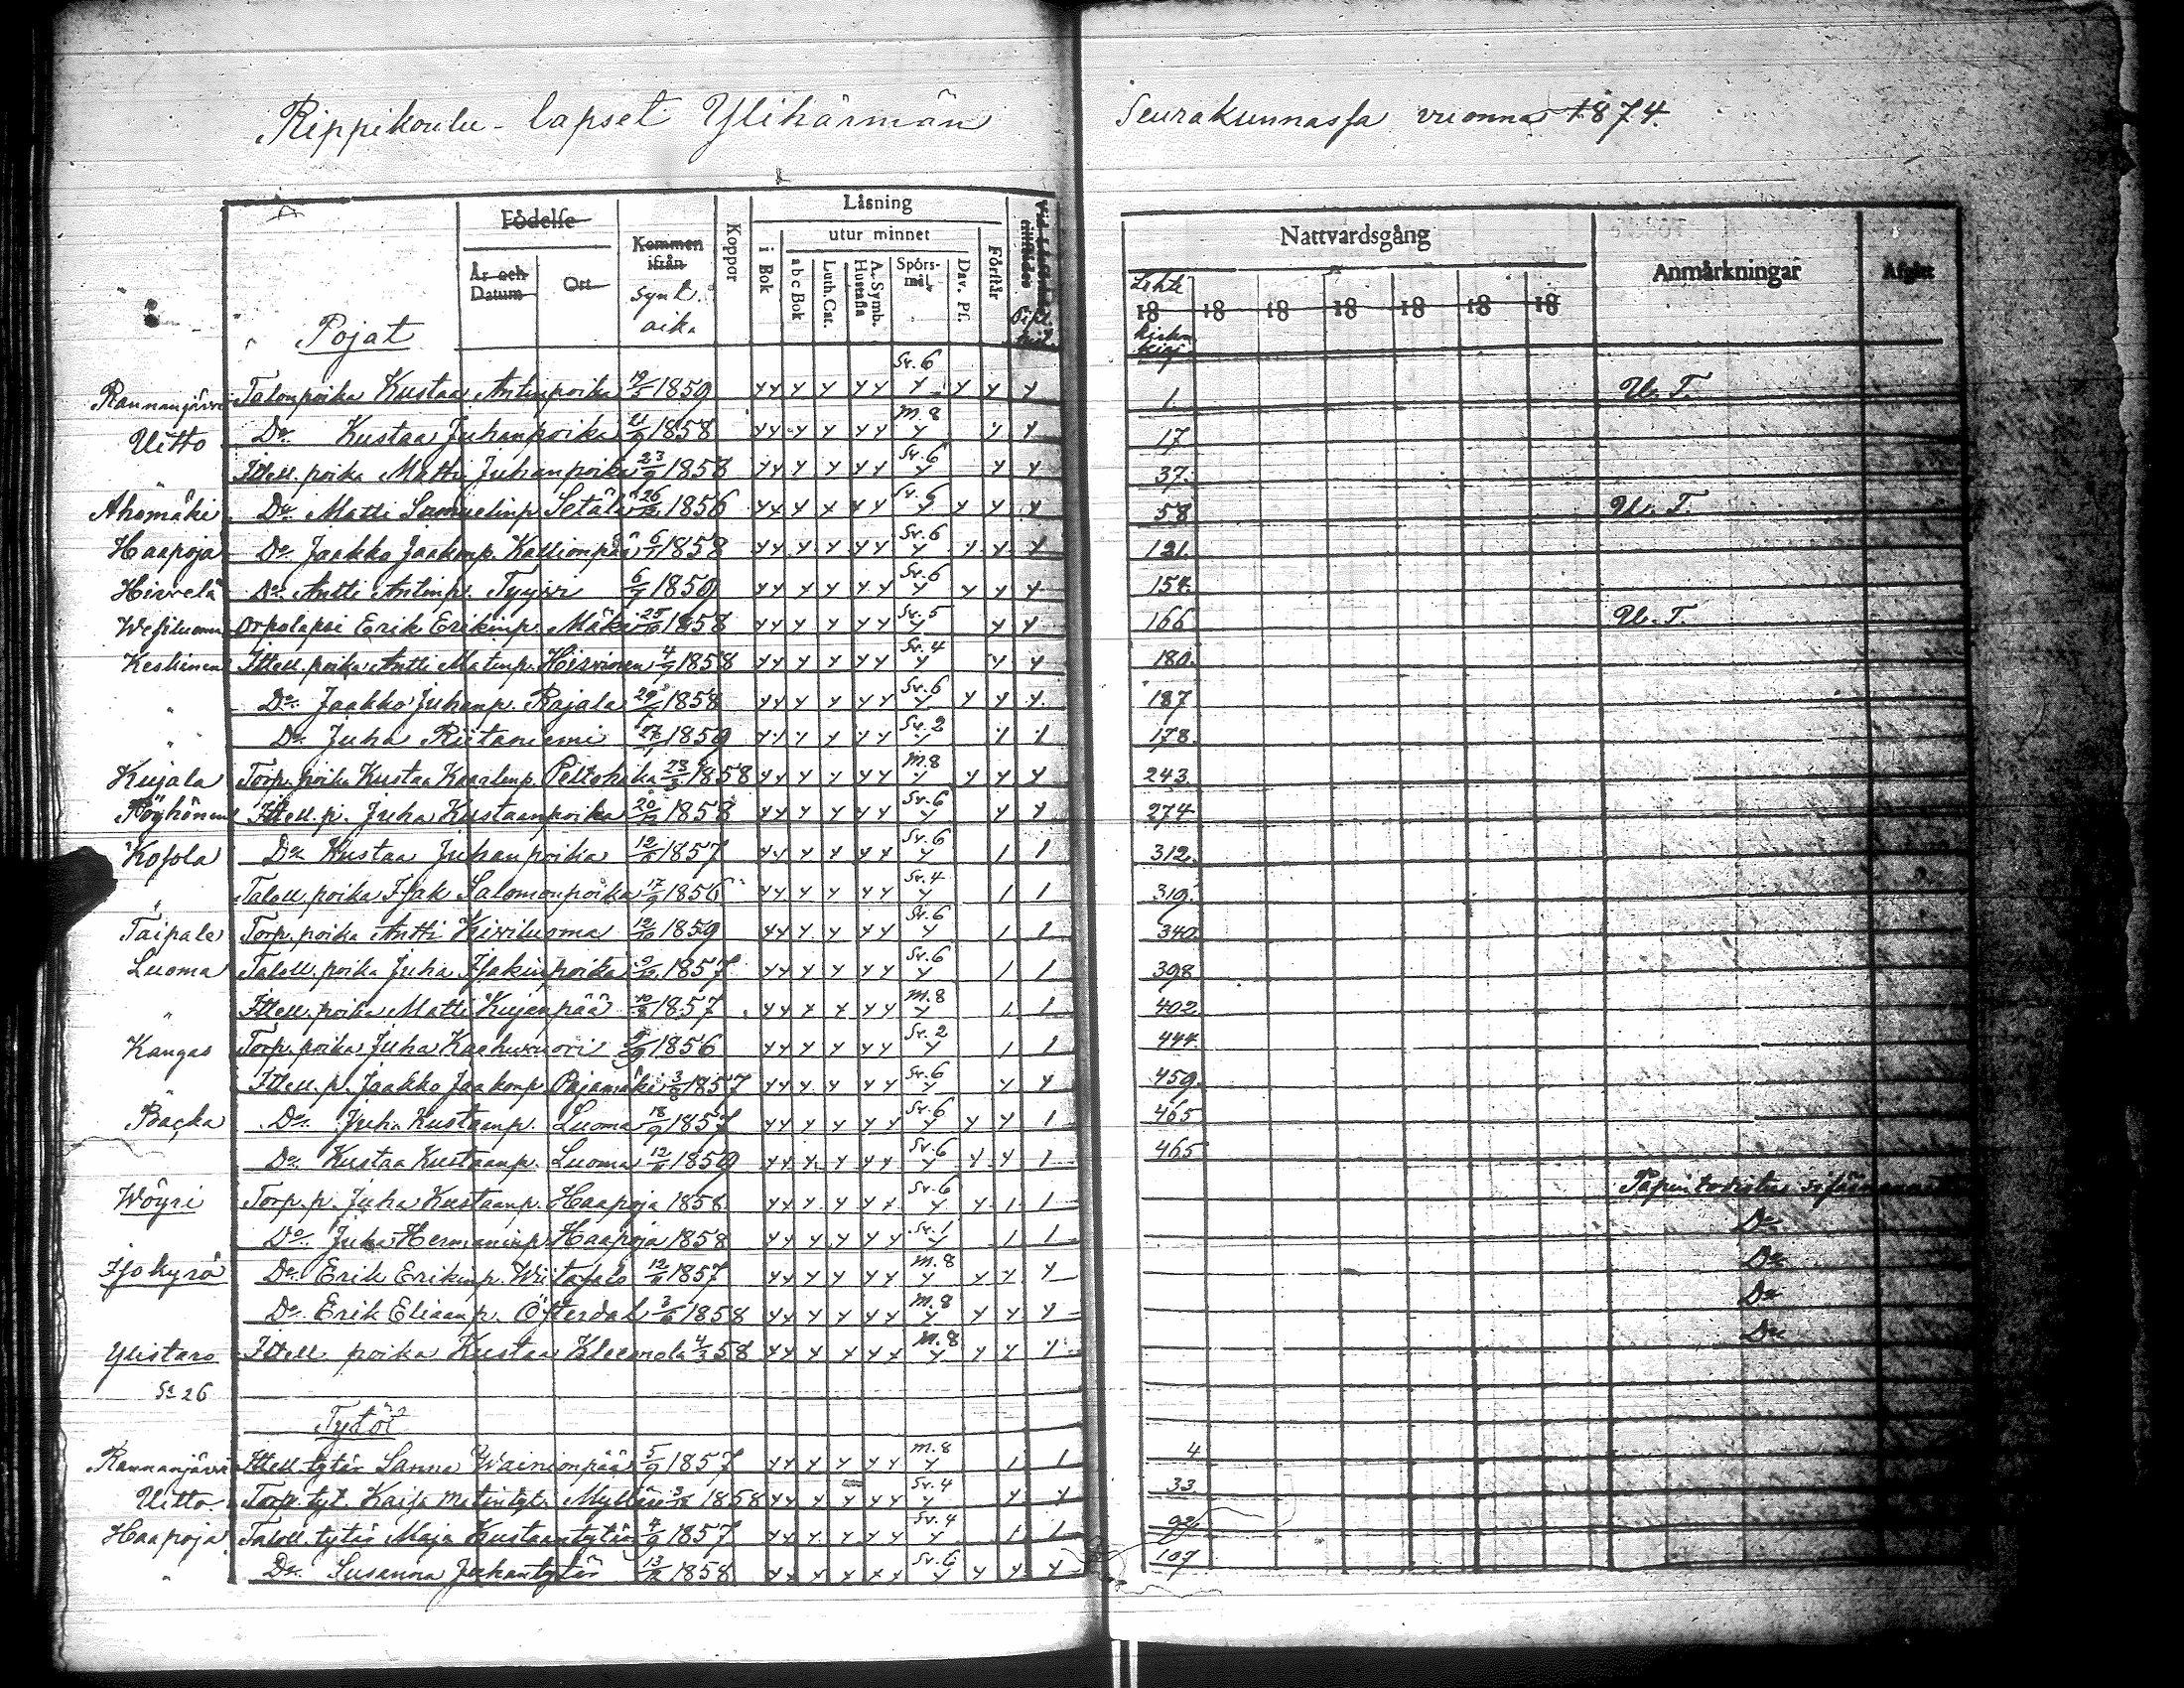 Rippikoulu-lapset Ylihärmän Seurakunnassa vuonna 1874.
Födelse
År och Datum
Ort
Kommen ifrån
synt. aika
Koppor
Läsning
i Bok
utur minnet
a b c Bok
Luth. Cat.
A. Symb. Hustafla
Spörsmål
Dav. Ps.
Förstår
Nattvardsgång
Lehti kirkonkirj.
18 18 18 18 18 18 18
Anmärkningar
Afgått
Pojat
Rannanjärvi Talonpoika Kustaa Antinpoika 1859 Sv. 6 1. U. T.
Uitto Do. Kustaa Juhanpoika 1858 m. 8 17
Ittell. poika Matti Juhanpoika 23/9 1858 Sv. 6 37.
Ahomäki Do. Matti Samuelinp. Setälä 1856 58 U. T.
Haapoja Do. Jaakko Jaakonp. Kallionpää 1858 Sv. 6 121.
Hirvelä Do. Antti Antinp. 1859 Sv. 6 154.
Orpolapsi Erik Erikinp. Mäki 1858 Sv. 5 166 U. T.
Keskinen Ittell. poika Antti Matinp. Hirvinen 1858 Sv. 4 180.
" Do. Jaakko Juhanp. Rajala 1858 Sv. 6 187
" Do. Juha Riitaniemi 1859 Sv. 2 178.
Kujala Torp. poika Kustaa Kaarlenp. Peltohaka 23/3 1858 m. 8 243.
Pöyhönen Ittell. p. Juha Kustaanpoika 1858 Sv. 6 274
Kosola Do. Kustaa Juhanpoika 1857 Sv. 6 312.
" Taloll. poika Isak Salomonpoika 17/9 1856 Sv. 4 319.
Taipale Torp. poika Antti Kiviluoma 12/10 1859 Sv. 6 340.
Luoma Taloll. poika Juha Isakinpoika 1857 Sv. 6 398
" Ittell. poika Matti Kujanpää 1857 m. 8 402
Kangas Torp. poika Juha Kaahuvuori 1856 Sv. 2 444.
" Ittell. p. Jaakko Jaakonp. Pajamäki 1857 Sv. 6 459.
Backa Do. Juha Kustaanp. Luoma 18/9 1857 Sv. 6 465
Do. Kustaa Kustaanp. Luoma 1859 Sv. 6 465
Wöyri Torp. p. Juha Kustaanp. Haapoja 1858 Sv. 6
Do. Juha Hermaninp. Haapoja 1858 Sv. 1 Do
Isokyrö Do. Erik Erikinp. 1857 m. 8 Do
Do. Erik Eliaanp. Österdal 1858 m. 8 Do
Ylistaro Ittell poika Kustaa Kleemola 4/3 58 m. 8 Do
Sa 26
Tytöt
Rannanjärvi Ittell. tytär Sanna Wainionpää 5/9 1857 m. 8 4
Uitto Torp. tyt. Kaisa Matintyt. 1858 Sv. 4 33
Haapoja Taloll. tytär Maja Kustaantytär 4/9 1857 Sv. 4 92
" Do. Susanna Juhantytär 1858 Sv. 6 107